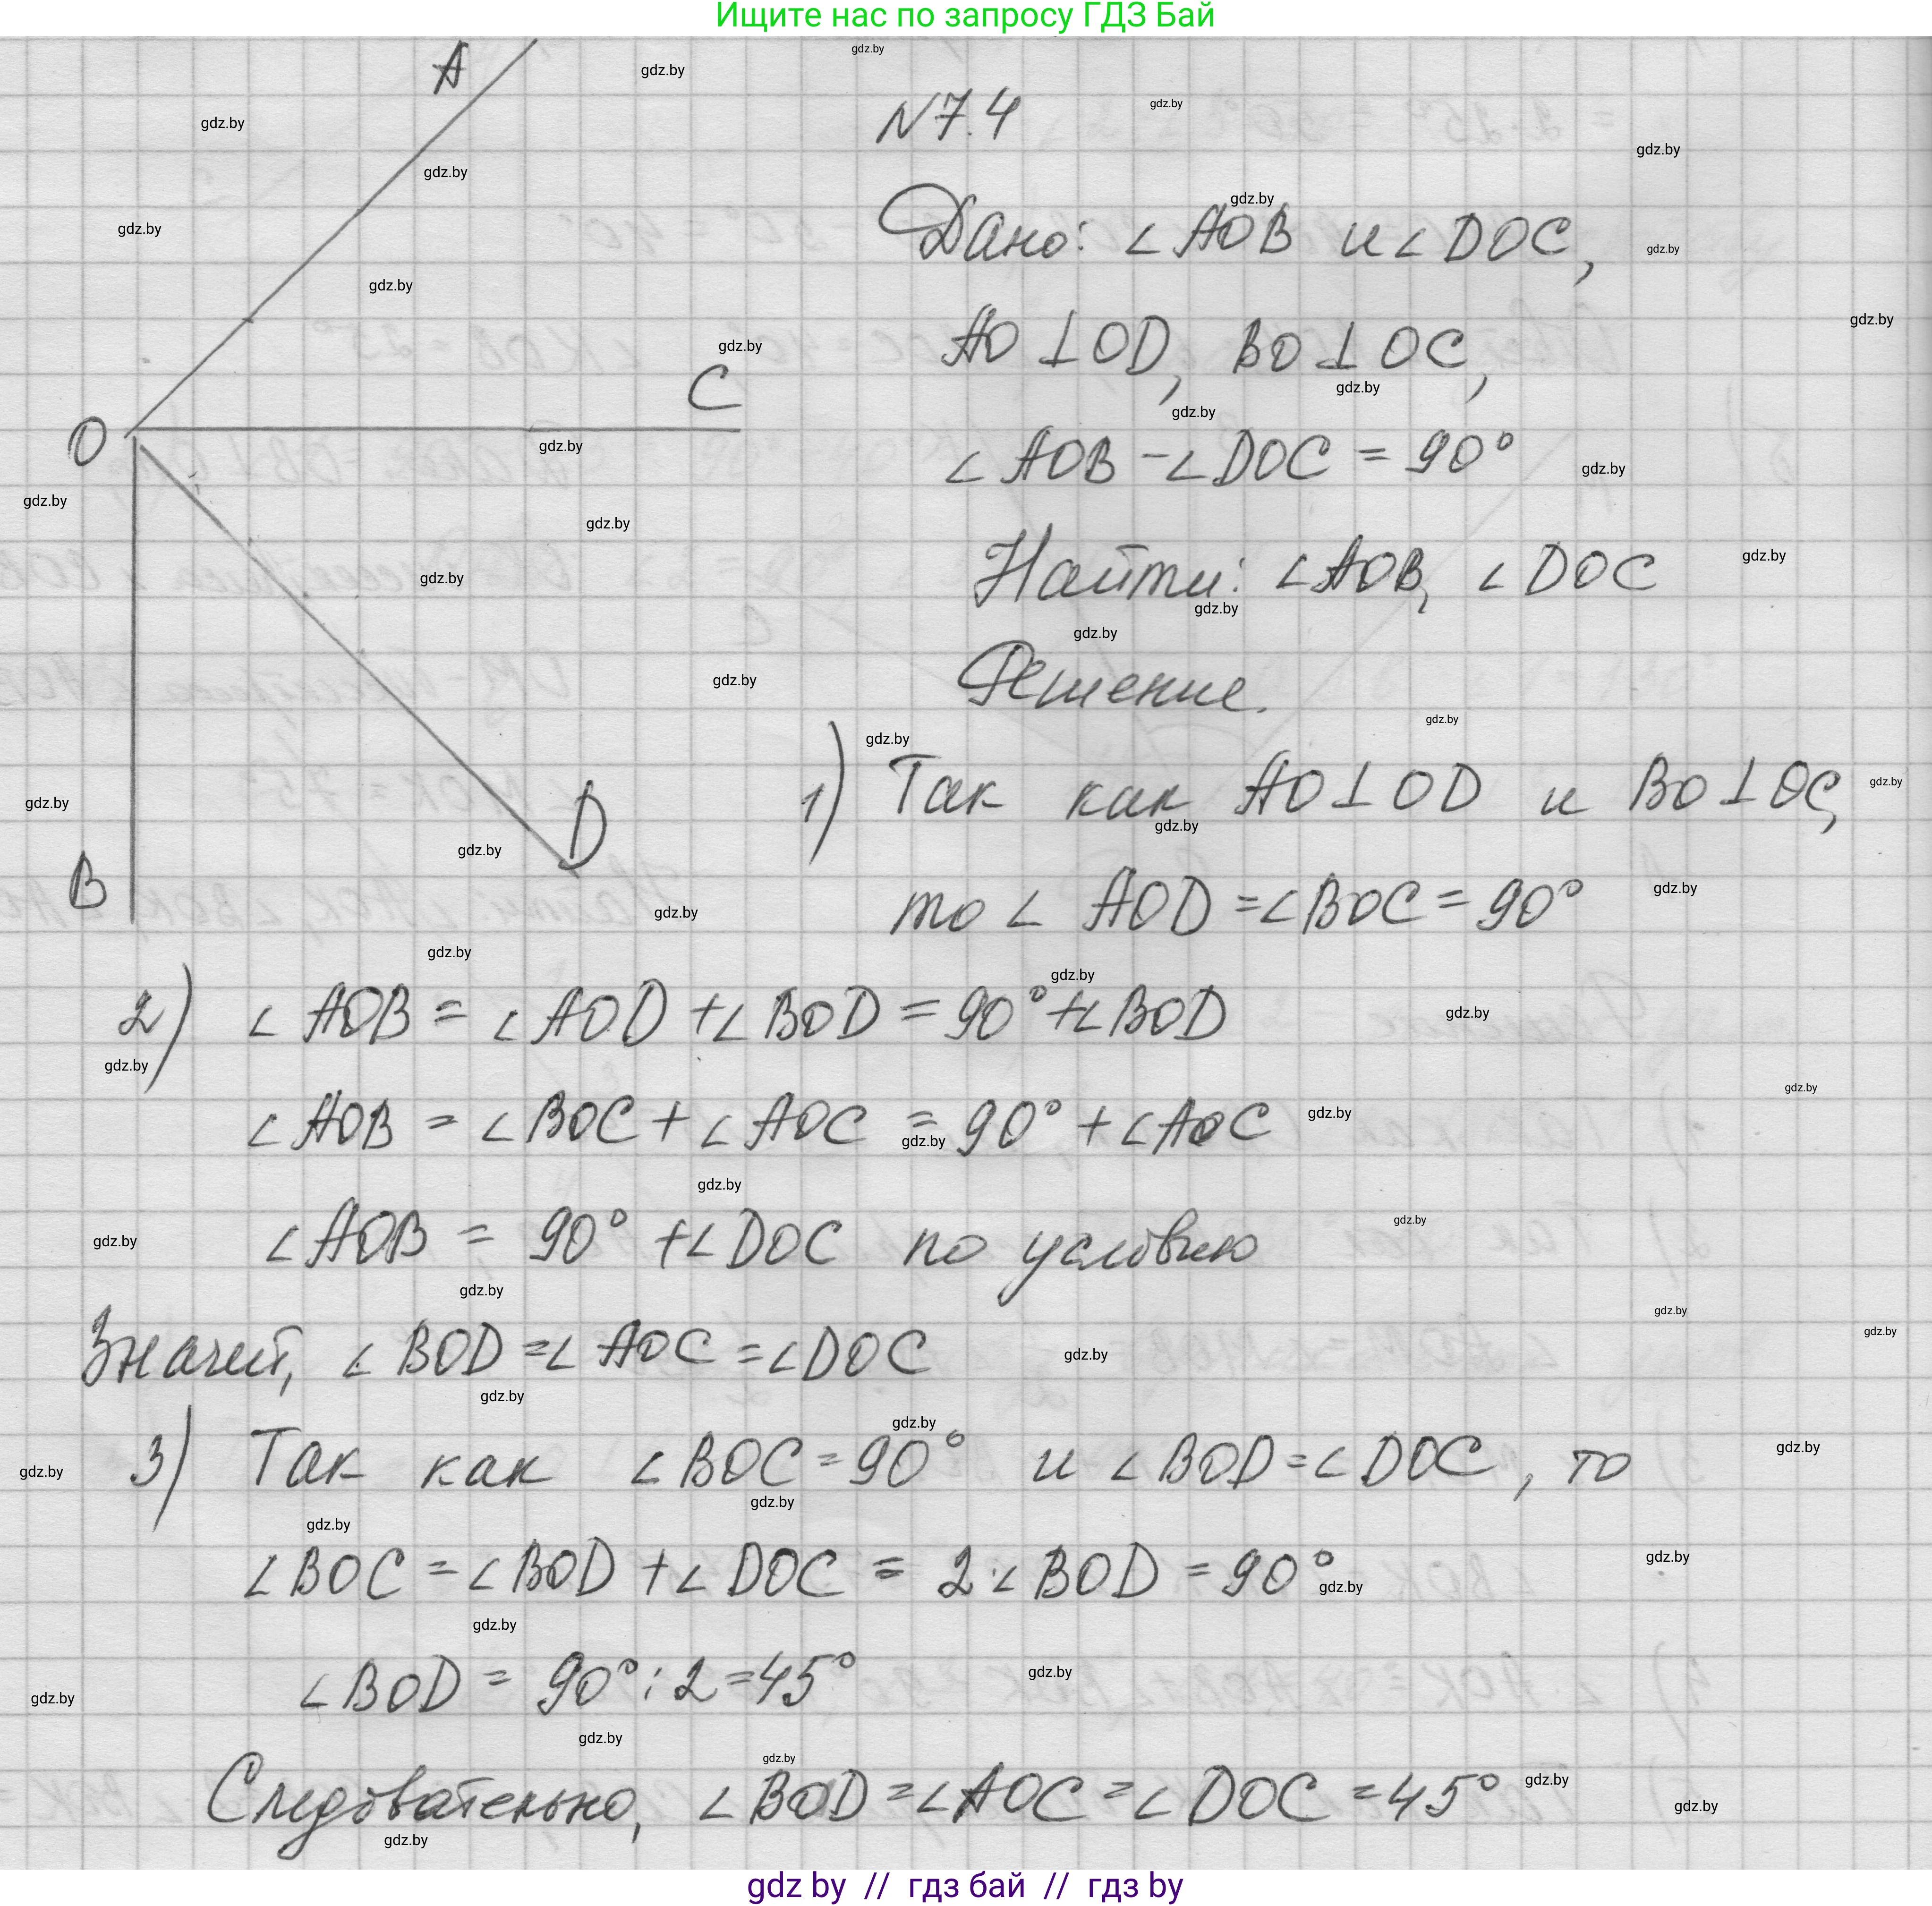 Ищите нас по запросу ГДЗ Бай
N7.4
Дано: ∠AOB и ∠DOC,
AO⊥OD, BO⊥OC,
∠AOB - ∠DOC = 90°
Найти: ∠AOB, ∠DOC
Решение.
1) Так как AO⊥OD и BO⊥OC,
то ∠AOD = ∠BOC = 90°
2) ∠AOB = ∠AOD + ∠BOD = 90° + ∠BOD
∠AOB = ∠BOC + ∠AOC = 90° + ∠AOC
∠AOB = 90° + ∠DOC по условию
Значит, ∠BOD = ∠AOC = ∠DOC
3) Так как ∠BOC = 90° и ∠BOD = ∠DOC, то
∠BOC = ∠BOD + ∠DOC = 2·∠BOD = 90°
∠BOD = 90° : 2 = 45°
Следовательно, ∠BOD = ∠AOC = ∠DOC = 45°
A
O
C
B
D
gdz.by
gdz by // гдз бай // гдз by